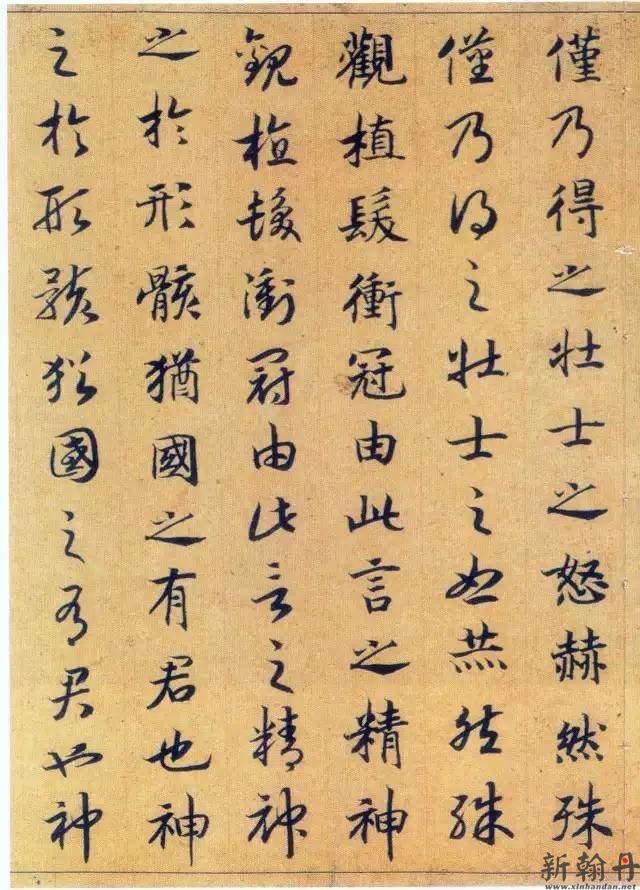 僅乃得之壯士之怒赫然殊
僅乃得之壯士之怒赫然殊
觀植髮衝冠由此言之精神
觀植髮衝冠由此言之精神
之於形骸猶國之有君也神
之於形骸猶國之有君也神
新翰丹
www.xinhandan.net